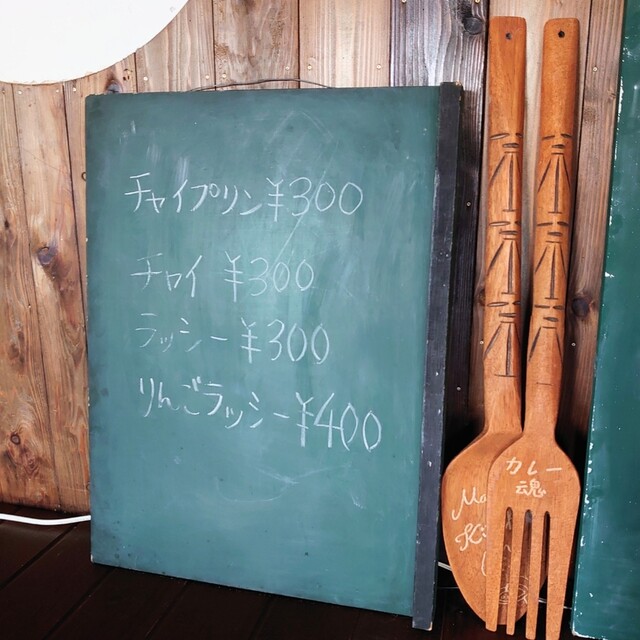 チャイプリン¥300
チャイ ¥300
ラッシー¥300
りんごラッシー¥400
カレー
魂